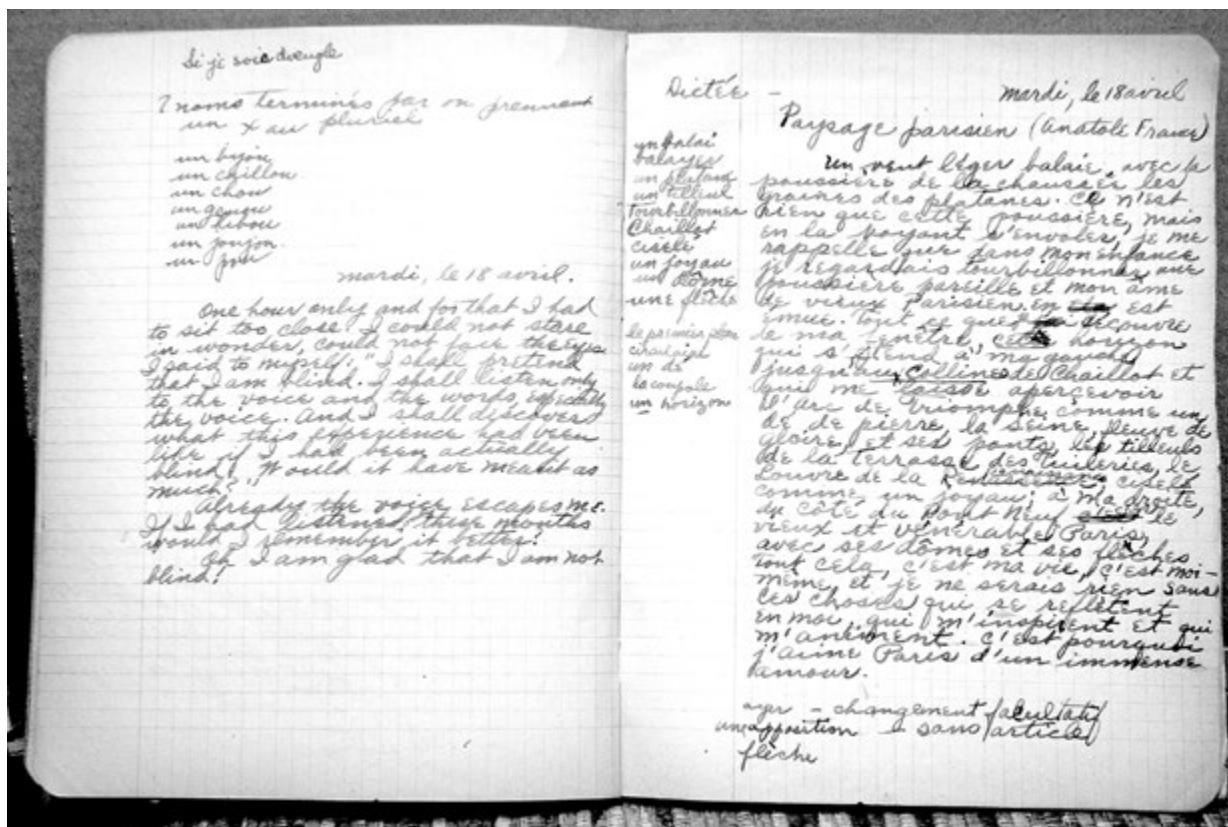 Si je sois aveugle
7 noms terminés par ou prennent
un x au pluriel
un bijou
un caillou
un chou
un genou
un hibou
un joujou
un pou
mardi, le 18 avril.
One hour only and for that I had
to sit too close. I could not stare
in wonder, could not face the eyes.
I said to myself: "I shall pretend
that I am blind. I shall listen only
to the voice and the words, especially
the voice. And I shall discover
what this experience had been
like if I had been actually
blind. Would it have meant as
much?"
Already the voice escapes me.
If I had listened, these months
would I remember it better?
Oh I am glad that I am not
blind!
Dictée -
mardi, le 18 avril
Paysage parisien (Anatole France)
un balai
balayer
un platane
un tilleul
tourbillonner
Chaillot
ciselé
un joyau
un dôme
une flèche
le premier plan
un dé
un horizon
Un vent léger balaie, avec la
poussière de la chaussée, les
graines des platanes. Ce n'est
rien que cette poussière, mais
en la voyant s'envoler, je me
rappelle que dans mon enfance
je regardais tourbillonner une
poussière pareille et mon âme
de vieux Parisien en est
émue. Tout ce que je découvre
de ma fenêtre, cet horizon
qui s'étend à ma gauche
jusqu'au collines de Chaillot et
qui me laisse apercevoir
l'Arc de Triomphe comme un
dé de pierre, la Seine, fleuve de
gloire, et ses ponts, les tilleuls
de la terrasse des Tuileries, le
Louvre de la Renaissance, ciselé
comme un joyau; à ma droite,
du côté du Pont Neuf le
vieux et vénérable Paris,
avec ses dômes et ses flèches
tout cela, c'est ma vie, c'est moi-
même, et je ne serais rien sans
ces choses qui se reflètent
en moi, qui m'inspirent et qui
m'animent. C'est pourquoi
j'aime Paris d'un immense
amour.
ayer - changement facultatif
une apposition - sans article
flèche